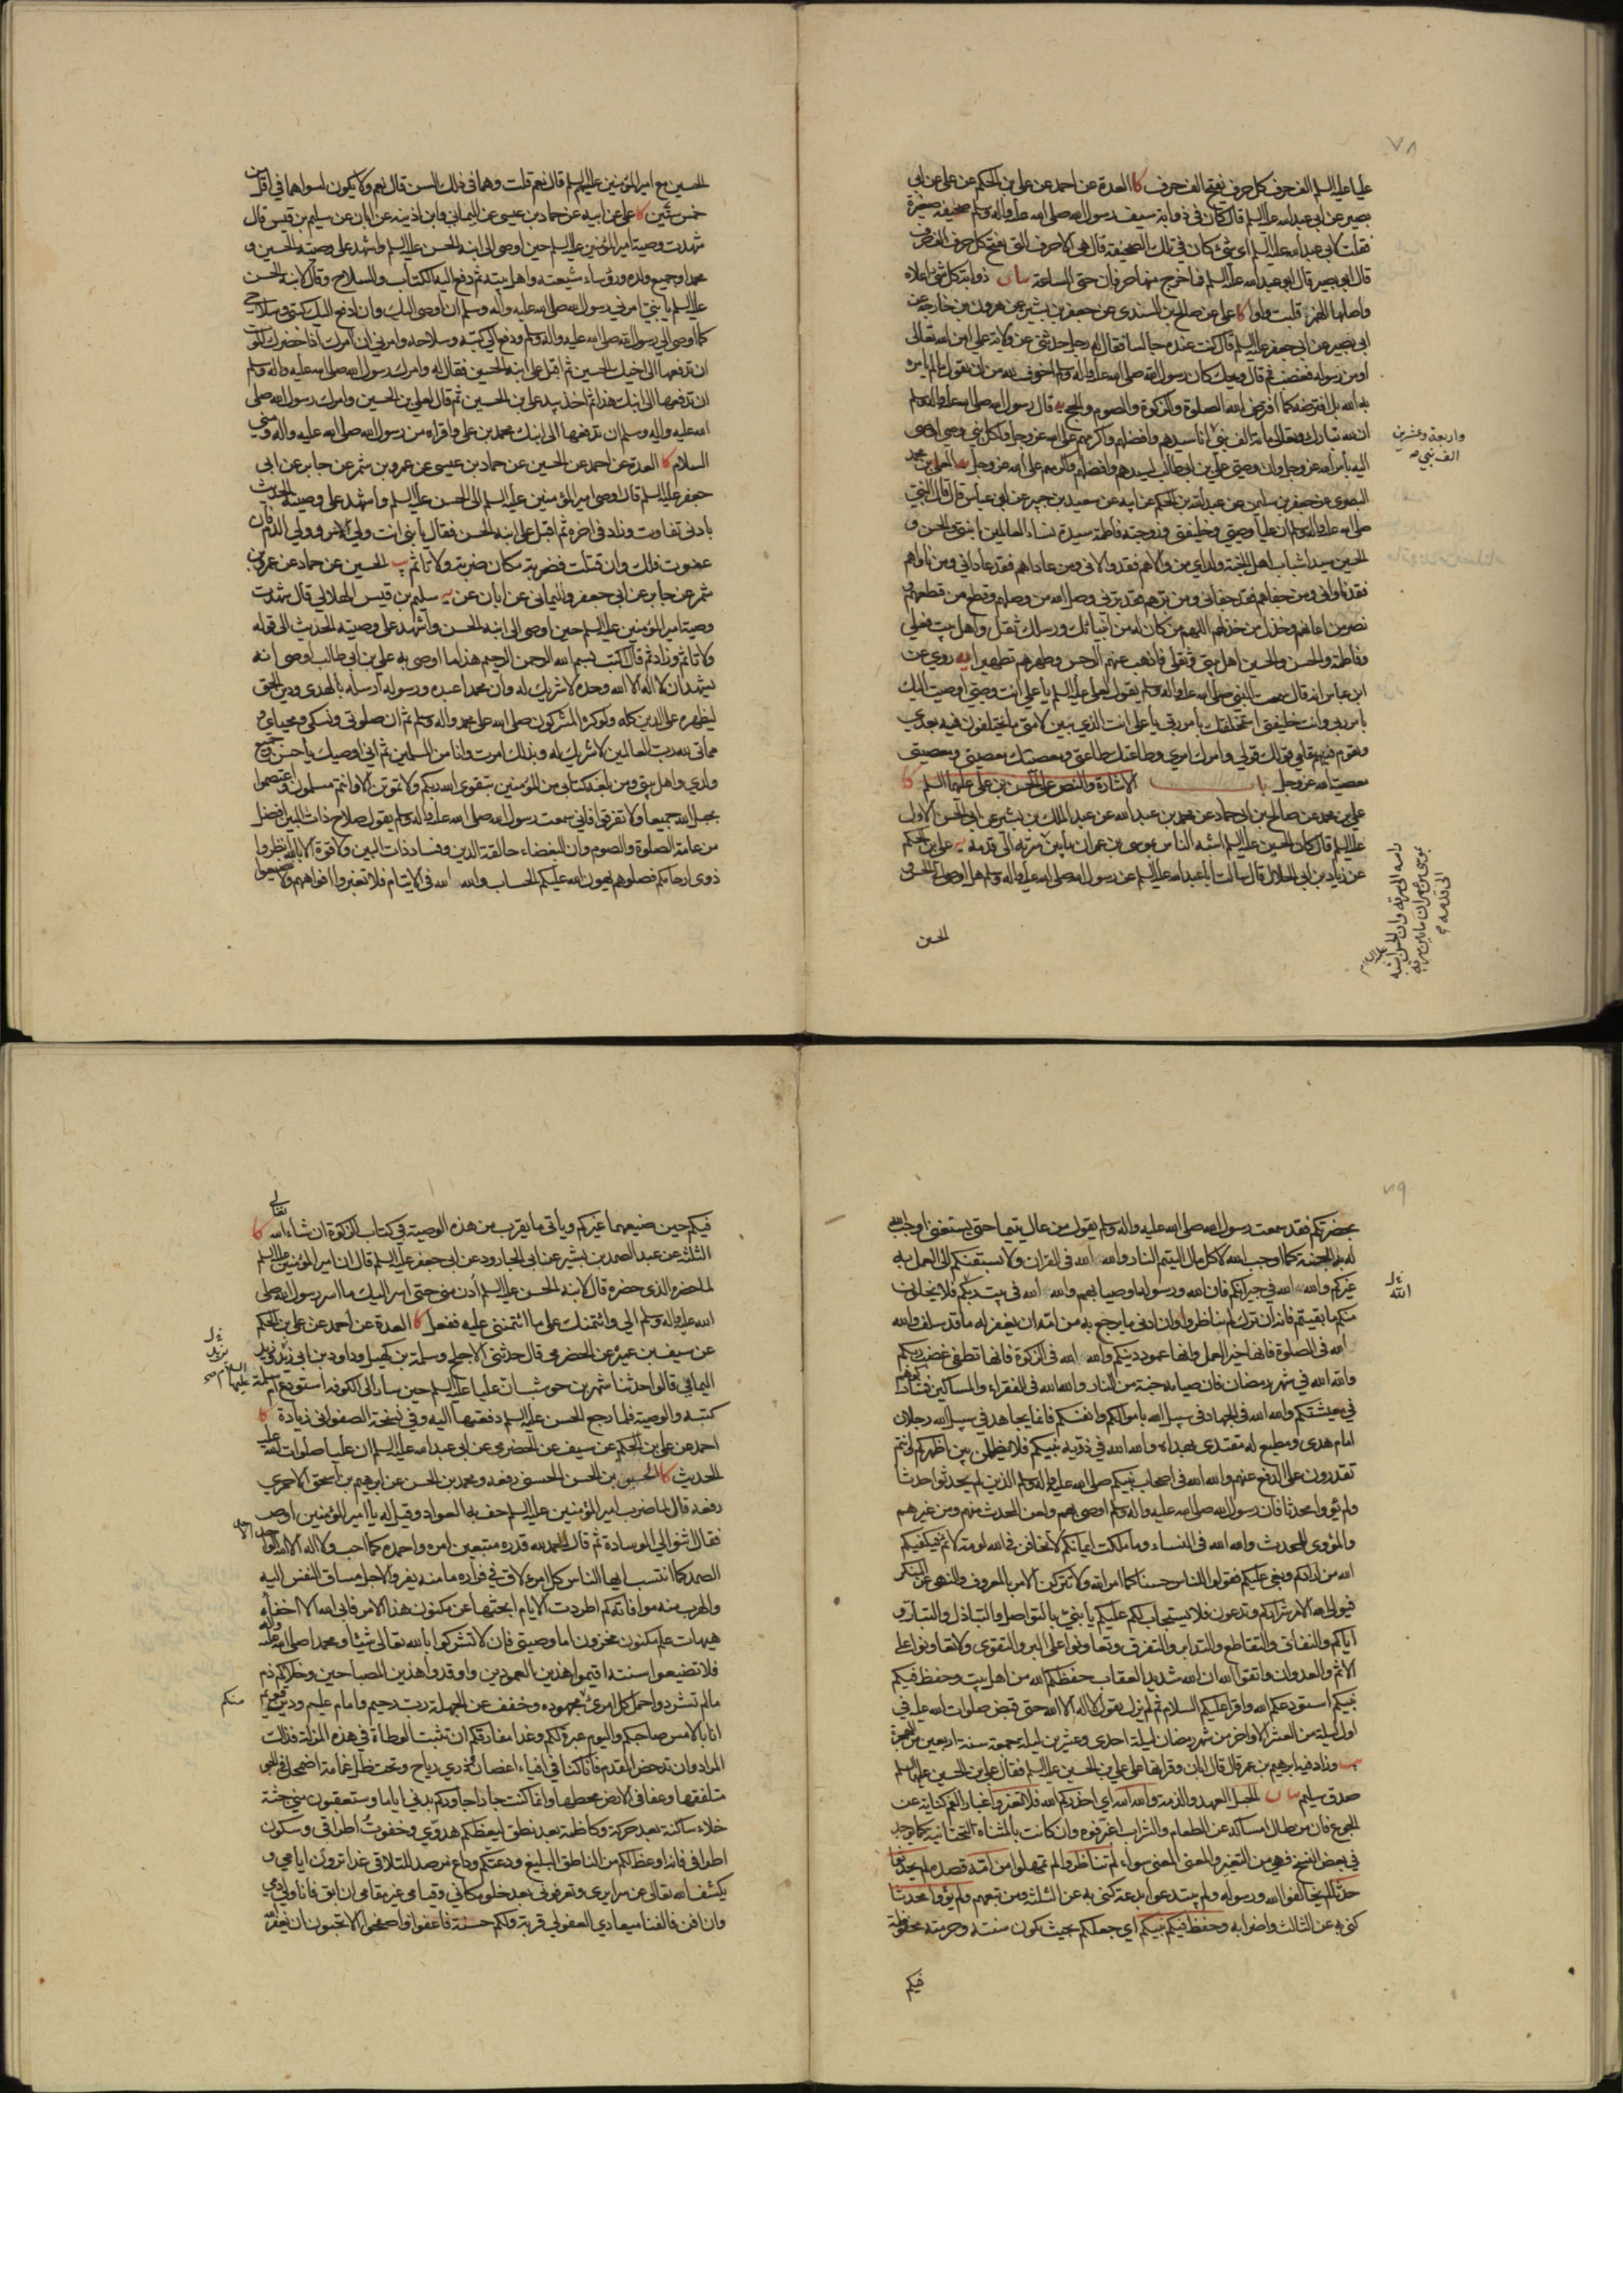 ٧٨
عليا عليه السلم الف حرف كل حرف يفتح الف حرف كا العدة عن احمد عن علي بن الحكم عن علي عن ابي
بصير عن ابي عبد الله عليه السلم قال كان في ذوابة سيف رسول الله صلى الله عليه واله وسلم صحيفة صغيرة
فقلت لابي عبد الله عليه السلم اي شئ كان في تلك الصحيفة قال هي الاحرف التي يفتح كل حرف الف حرف
قال ابو بصير قال ابو عبد الله عليه السلم فما خرج منها حرفان حتى الساعة بيان ذوابة كل شئ اعلاه
واصلها الهمز قلبت واوا كا علي عن صالح بن السندي عن جعفر بن بشير عن هرون بن خارجة عن
ابي بصير عن ابي جعفر عليه السلم قال كنت عنده جالسا فقال له رجل حدثني عن ولاية علي امن الله تعالى
او من رسوله فغضب ثم قال ويحك كان رسول الله صلى الله عليه واله وسلم اخوف لله من ان يقول ما لم يامره
به الله بل افترضه كما افترض الله الصلوة والزكوة والصوم والحج يه قال رسول الله صلى الله عليه واله وسلم
ان لله تبارك وتعالى مائة الف نبي انا سيدهم وافضلهم واكرمهم على الله عز وجل ولكل نبي وصي اوصى
واربعة وعشرين
الف نبي صح
اليه بامر الله عز وجل وان وصيي علي بن ابي طالب لسيدهم وافضلهم واكرمهم على الله عز وجل يه المعلى بن محمد
البصري عن جعفر بن سليمن عن عبد الله بن الحكم عن ابيه عن سعيد بن جبير عن ابن عباس قال قال النبي
صلى الله عليه واله وسلم ان عليا وصيي وخليفتي وزوجته فاطمة سيدة نساء العالمين ابنتي والحسن و
الحسين سيدا شباب اهل الجنة ولداي من والاهم فقد والاني ومن عاداهم فقد عاداني ومن ناواهم
فقد ناواني ومن جفاهم فقد جفاني ومن برهم فقد برني وصل الله من وصلهم وقطع من قطعهم و
نصر من اعانهم وخذل من خذلهم اللهم من كان له من انبيائك ورسلك ثقل واهل بيت فعلي
وفاطمة والحسن والحسين اهل بيتي وثقلي فاذهب عنهم الرجس وطهرهم تطهيرا يه روي عن
ابن عباس انه قال سمعت النبي صلى الله عليه واله وسلم يقول لعلي عليه السلم يا علي انت وصيي اوصيت اليك
بامر ربي وانت خليفتي استخلفتك بامر ربي يا علي انت الذي تبين لامتي ما يختلفون فيه بعدي
وتقوم فيهم مقامي قولك قولي وامرك امري وطاعتك طاعتي ومعصيتك معصيتي ومعصيتي
معصية الله عز وجل باب الاشارة والنص على الحسن بن علي عليهما السلم كا
علي بن محمد عن صالح بن ابي حماد عن محمد بن عبد الله عن عبد الملك بن بشير عن ابي الحسن الاول
عليه السلم قال كان الحسين عليه السلم اشبه الناس بموسى بن عمران ما بين سرته الى قدمه يه علي بن الحكم
عن زياد بن ابي الحلال قال سالت ابا عبد الله عليه السلم عن رسول الله صلى الله عليه واله وسلم هل اوصى الى الحسن و
راسه الى سرته وان الحسن اشبه
بموسى بن عمران ما بين سرته
الى قدمه
الحسين
الحسين مع امير المؤمنين عليهم السلم قال نعم قلت وهما في ذلك السن قال نعم ولا يكون لسواهما في اقل من
خمس سنين كا علي عن ابيه عن حماد بن عيسى عن اليماني وابن اذينه عن ابان عن سليم بن قيس قال
شهدت وصية امير المؤمنين عليه السلم حين اوصى الى ابنه الحسن عليه السلم واشهد على وصيته الحسين و
محمدا وجميع ولده ورؤساء شيعته واهل بيته ثم دفع اليه الكتاب والسلاح وقال لابنه الحسن
عليه السلم يا بني امرني رسول الله صلى الله عليه وآله وسلم ان اوصي اليك وان ادفع اليك كتبي وسلاحي
كما اوصى الي رسول الله صلى الله عليه واله وسلم ودفع الي كتبه وسلاحه وامرني ان آمرك اذا حضرك الموت
ان تدفعها الى اخيك الحسين ثم اقبل على ابنه الحسين فقال له وامرك رسول الله صلى الله عليه واله وسلم
ان تدفعها الى ابنك هذا ثم اخذ بيد علي بن الحسين ثم قال لعلي بن الحسين وامرك رسول الله صلى
الله عليه واليه وسلم ان تدفعها الى ابنك محمد بن علي واقراه من رسول الله صلى الله عليه واله ومني
السلام كا العدة عن احمد عن الحسين عن حماد بن عيسى عن عمرو بن شمر عن جابر عن ابي
جعفر عليه السلم قال اوصى امير المؤمنين عليه السلم الى الحسن عليه السلم واشهد على وصيته الحديث
بادنى تفاوت وزاد في اخره ثم اقبل على ابنه الحسن فقال يا بني انت ولي الامر وولي الدم فان
عفوت فلك وان قتلت فضربة مكان ضربة ولا تاثم يب الحسين عن حماد عن عمرو بن
شمر عن جابر عن ابي جعفر واليماني عن ابان عن يه سليم بن قيس الهلالي قال شهدت
وصية امير المؤمنين عليه السلم حين اوصى الى ابنه الحسن واشهد على وصيته الحديث الى قوله
ولا تاثم وزاد ثم قال اكتب بسم الله الرحمن الرحيم هذا ما اوصى به علي بن ابي طالب اوصى انه
يشهد ان لا اله الا الله وحده لا شريك له وان محمدا عبده ورسوله ارسله بالهدى ودين الحق
ليظهره على الدين كله ولو كره المشركون صلى الله على محمد واله وسلم ثم ان صلوتي ونسكي ومحياي و
مماتي لله رب العالمين لا شريك له وبذلك امرت وانا من المسلمين ثم اني اوصيك يا حسن وجميع
ولدي واهل بيتي ومن بلغه كتابي من المؤمنين بتقوى الله ربكم ولا تموتن الا وانتم مسلمون واعتصموا
بحبل الله جميعا ولا تفرقوا فاني سمعت رسول الله صلى الله عليه واله وسلم يقول صلاح ذات البين افضل
من عامة الصلوة والصوم وان البغضاء حالقة الدين وفساد ذات البين ولا قوة الا بالله انظروا
ذوي ارحامكم فصلوهم يهون الله عليكم الحساب والله الله في الايتام فلا تغيروا افواههم ولا يضيعوا
٧٩
بحضرتكم فقد سمعت رسول الله صلى الله عليه واله وسلم يقول من عال يتيما حتى يستغني اوجب الله
له به الجنة كما اوجب الله لاكل مال اليتيم النار والله الله في القران ولا يسبقنكم الى العمل به
غيركم والله الله في جيرانكم فان الله ورسوله اوصيا بهم والله الله في بيت ربكم فلا يخلون
منكم ما بقيتم فانه ان ترك لم تناظروا وان ادنى ما يرجع به من امه ان يغفر له ما قد سلف والله
الله في الصلوة فانها خير العمل وانها عمود دينكم والله الله في الزكوة فانها تطفئ غضب ربكم
والله الله في شهر رمضان فان صيامه جنة من النار والله الله في الفقراء والمساكين فشاركوهم
في معيشتكم والله الله في الجهاد في سبيل الله باموالكم وانفسكم فانما يجاهد في سبيل الله رجلان
امام هدى ومطيع له مقتدى بهداه والله الله في ذرية نبيكم فلا يظلمن بين اظهركم وانتم
تقدرون على الدفع عنهم والله الله في اصحاب نبيكم صلى الله عليه واله وسلم الذين لم يحدثوا حدثا
ولم يؤووا محدثا فان رسول الله صلى الله عليه واله وسلم اوصى بهم ولعن المحدث منهم ومن غيرهم
والمؤوي للمحدث والله الله في النساء وما ملكت ايمانكم لا تخافن في الله لومة لائم فيكفيكم
الله من ارادكم وبغى عليكم فقولوا للناس حسنا كما امر الله ولا تتركن الامر بالمعروف والنهي عن المنكر
فيولي الله الامر شراركم وتدعون فلا يستجاب لكم عليكم يا بني بالتواصل والتباذل والتبار و
اياكم والنفاق والتقاطع والتدابر والتفرق وتعاونوا على البر والتقوى ولا تعاونوا على
الاثم والعدوان واتقوا الله ان الله شديد العقاب حفظكم الله من اهل بيت وحفظ فيكم
نبيكم استودعكم الله واقرا عليكم السلام ثم لم يزل يقول لا اله الا الله حتى قبض صلوات الله عليه في
اول ليلة من العشر الاواخر من شهر رمضان ليلة احدى وعشرين ليلة جمعة سنة اربعين من الهجرة
يب وزاد فيه ابرهيم بن عمر قال قال ابان وقراتها على علي بن الحسين عليه السلم فقال علي بن الحسين عليهما السلم
صدق سليم بيان الحبل العهد والذمة والله الله اي احذركم الله فلا تغيروا اغبار الفم كناية عن
الجوع فان من طال امساكه عن الطعام والشراب اغبر فوه وان كانت بالمثناة التحتانية كما يوجد
في بعض النسخ فهي من التغيير والمعنى المعنى سواء لم تناظروا لم تمهلوا من امه قصده لم يحدثوا
حدثا لم يخالفوا الله ورسوله ولم يبتدعوا بدعة كنى به عن الثلثة ومن تبعهم ولم يؤووا محدثا
كنى به عن الثالث واضرابه وحفظ فيكم نبيكم اي جعلكم بحيث يكون سنته وحرمته محفوظة
فيكم
فيكم حين ضيعهما غيركم وياتي ما يقرب من هذه الوصية في كتاب الزكوة ان شاء الله تعالى كا
الثلثة عن عبد الصمد بن بشير عن ابي الجارود عن ابي جعفر عليه السلم قال ان امير المؤمنين عليه السلم
لما حضره الذي حضره قال لابنه الحسن عليه السلم ادن مني حتى اسر اليك ما اسر رسول الله صلى
الله عليه واله وسلم الي وائتمنك على ما ائتمنني عليه ففعل كا العدة عن احمد عن علي بن الحكم
عن سيف بن عميرة عن الحضرمي قال حدثني الاجلح وسلمة بن كهيل وداود بن ابي يزيد وزيد
اليمامي قالوا حدثنا شهر بن حوشب ان عليا عليه السلم حين سار الى الكوفة استودع ام سلمة
كتبه والوصية فلما رجع الحسن عليه السلم دفعتها اليه وفي نسخة الصفواني زيادة كا
احمد عن علي بن الحكم عن سيف عن الحضرمي عن ابي عبد الله عليه السلم ان عليا صلوات الله عليه
الحديث كا الحسين بن الحسن الحسني رفعه ومحمد بن الحسن عن ابرهيم بن اسحق الاحمري
رفعه قال لما ضرب امير المؤمنين عليه السلم حف به العواد وقيل له يا امير المؤمنين اوص
فقال اثنوا لي الوسادة ثم قال الحمد لله قدره متبعين امره واحمده كما احب ولا اله الا الله الواحد الاحد
الصمد كما انتسب ايها الناس كل امرء لاق في فراره ما منه يفر والاجل مساق النفس اليه
والهرب منه موافاته كم اطردت الايام ابحثها عن مكنون هذا الامر فابى الله الا اخفاءه
هيهات علم مكنون مخزون اما وصيتي فان لا تشركوا بالله تعالى شيئا ومحمدا صلى الله عليه واله
فلا تضيعوا سنته اقيموا هذين العمودين واوقدوا هذين المصباحين وخلاكم ذم
مالم تشردوا حمل كل امرئ مجهوده وخفف عن الجهلة رب رحيم وامام عليم ودين قويم
منكم
انا بالامس صاحبكم واليوم عبرة لكم وغدا مفارقكم ان تثبت الوطاة في هذه المزلة فذلك
المراد وان تدحض القدم فانا كنا في افياء اغصان وذري رياح وتحت ظل غمامة اضمحل في الجو
متلفقها وعفا في الارض محطها وانما كنت جارا جاوركم بدني اياما وستعقبون مني جثة
خلاء ساكنة بعد حركة وكاظمة بعد نطق ليعظكم هدوي وخفوت اطراقي وسكون
اطرافي فانه اوعظ لكم من الناطق البليغ ودعتكم وداع مرصد للتلاقي غدا ترون ايامي و
يكشف الله تعالى عن سرايري وتعرفوني بعد خلو مكاني وقيامي غير مقامي ان ابق فانا ولي دمي
وان افن فالفناء ميعادي العفو لي قربة ولكم حسنة فاعفوا واصفحوا الا تحبون ان يغفر الله